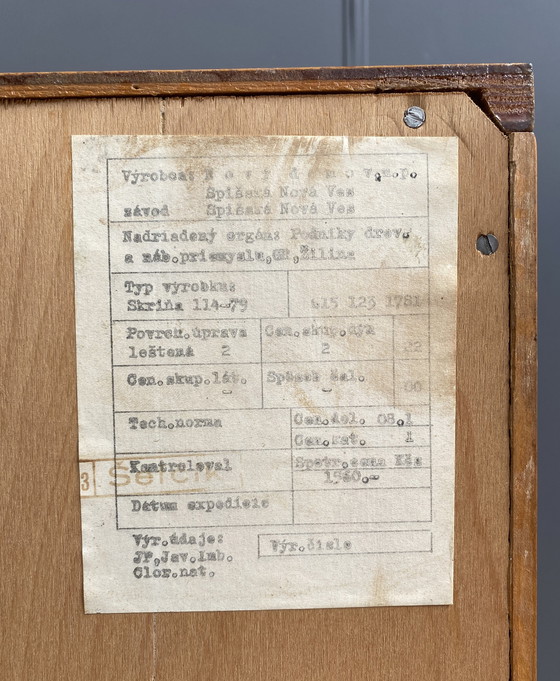 Výrobca: N o v ý d o m o v n.p.
Spišská Nová Ves
závod Spišská Nová Ves
Nadriadený orgán: Podniky drev.
a náb.priemyslu,GR,Žilina
Typ výrobku:
Skriňa 114-79 615 123 1781
Povrch.úprava Cen.skup.dýh
leštená 2 2 22
Cen.skup.lát. Spôsob čal.
- - 00
Tech.norma Cen.del. 08.1
Cen.kat. 1
Kontroloval Spotr.cena Kčs
3 Šefčík 1960.-
Dátum expedície
Výr.údaje: Výr.číslo
JP,Jav.Imb.
Clor.nat.